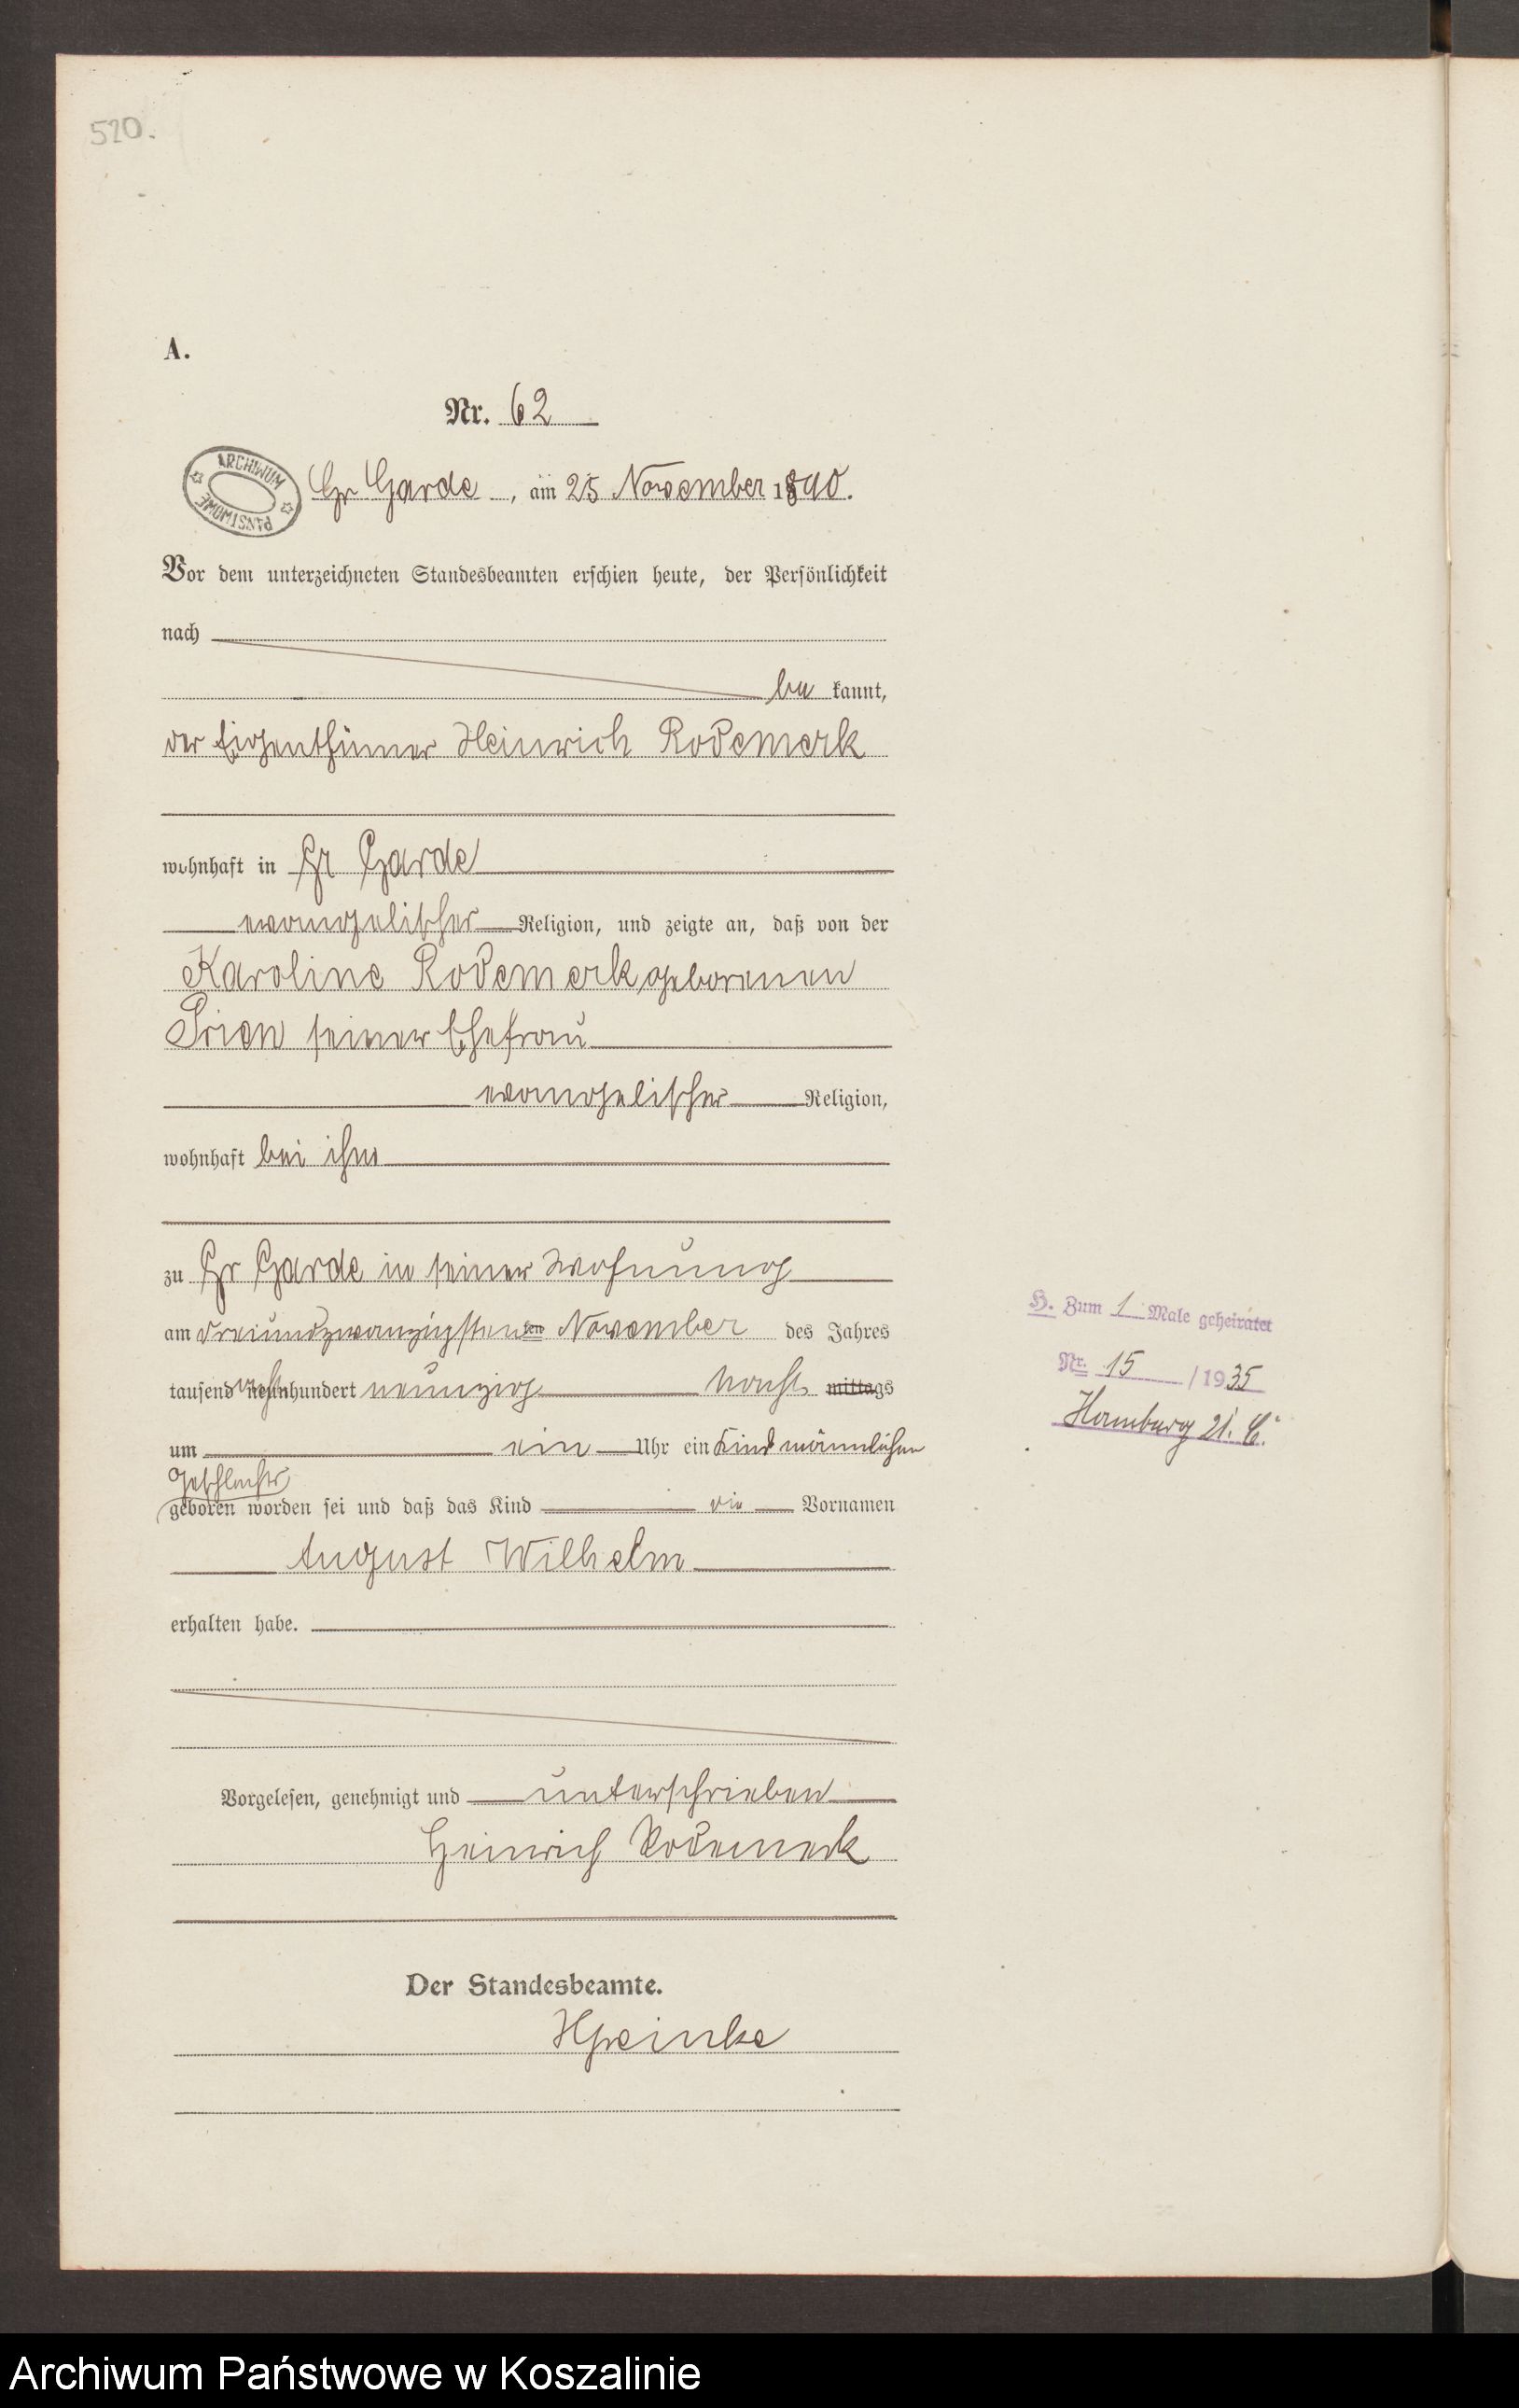 520.
A.
Nr. 62
ARCHIWUM PAŃSTWOWE
Gr Garde, am 25 November 1890.
Vor dem unterzeichneten Standesbeamten erschien heute, der Persönlichkeit
nach
be kannt,
der Eigenthümer Heinrich Rodemerk
wohnhaft in Gr Garde
evangelischer Religion, und zeigte an, daß von der
Karoline Rodemerk geborenen
Prien seiner Ehefrau
evangelischer Religion,
wohnhaft bei ihm
zu Gr Garde in seiner Wohnung
am dreiundzwanzigsten ten November des Jahres
tausend acht neunhundert neunzig Nachts mittags
um ein Uhr ein Kind männlichen
Geschlechts
geboren worden sei und daß das Kind die Vornamen
August Wilhelm
erhalten habe.
Vorgelesen, genehmigt und unterschrieben
Heinrich Rodemerk
Der Standesbeamte.
H. Zum 1 Male geheiratet
Nr. 15 / 1935
Hamburg 21.
Archiwum Państwowe w Koszalinie